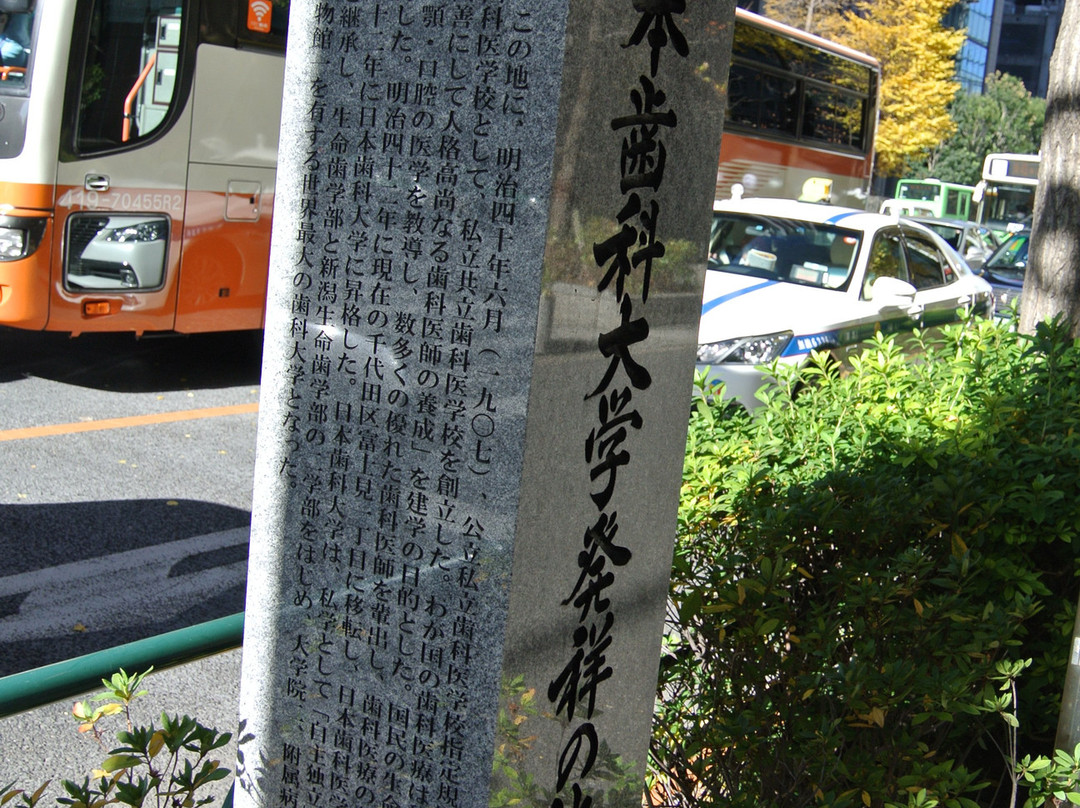 本歯科大学発祥の
この地に、明治四十年六月(一九〇七)、公立私立歯科医学校指定規
科医学校として、私立共立歯科医学校を創立した。わが国の歯科医療は
善にして人格高尚なる歯科医師の養成」を建学の目的とした。国民の生命
顎・口腔の医学を教導し、数多くの優れた歯科医師を輩出し、歯科医療の
した。明治四十一年に現在の千代田区富士見一丁目に移転し、日本歯科医学
十二年に日本歯科大学に昇格した。日本歯科大学は、私学として「自主独立
継承し、生命歯学部と新潟生命歯学部の二学部をはじめ、大学院、附属病
物館」を有する世界最大の歯科大学となった。
419-70455R2